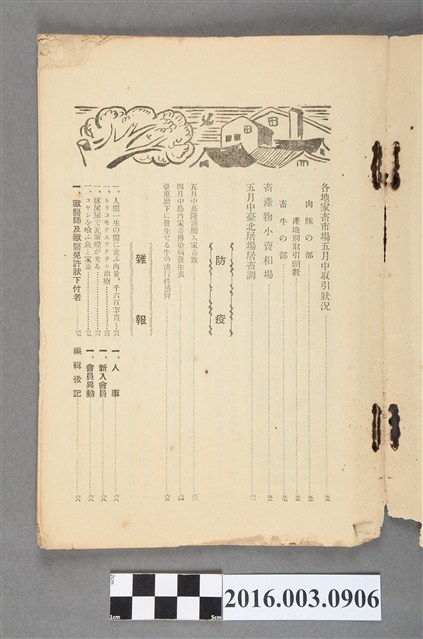 各地家畜市場五月中取引狀況
肉豚の部
產地別取引頭數
畜牛の部
畜產物小賣相場
五月中臺北屠場屠畜調
防疫
五月中基隆港輸入家畜數
四月中島内家畜傳染病發生表
臺東廳下に發生せる牛の流行性感冒
雜報
一、人間一生の間に食ふ肉量、千六百
一、トリコモナスワクチン治療
一、豚屎尿で瓦斯燈が光る
一、コセンを喰ふ魚と家畜
一、獸醫師及獸醫免許狀下付者
一、人事
一、新入會員
一、會員異動
編輯後記
1cm
5cm
2016.003.0906